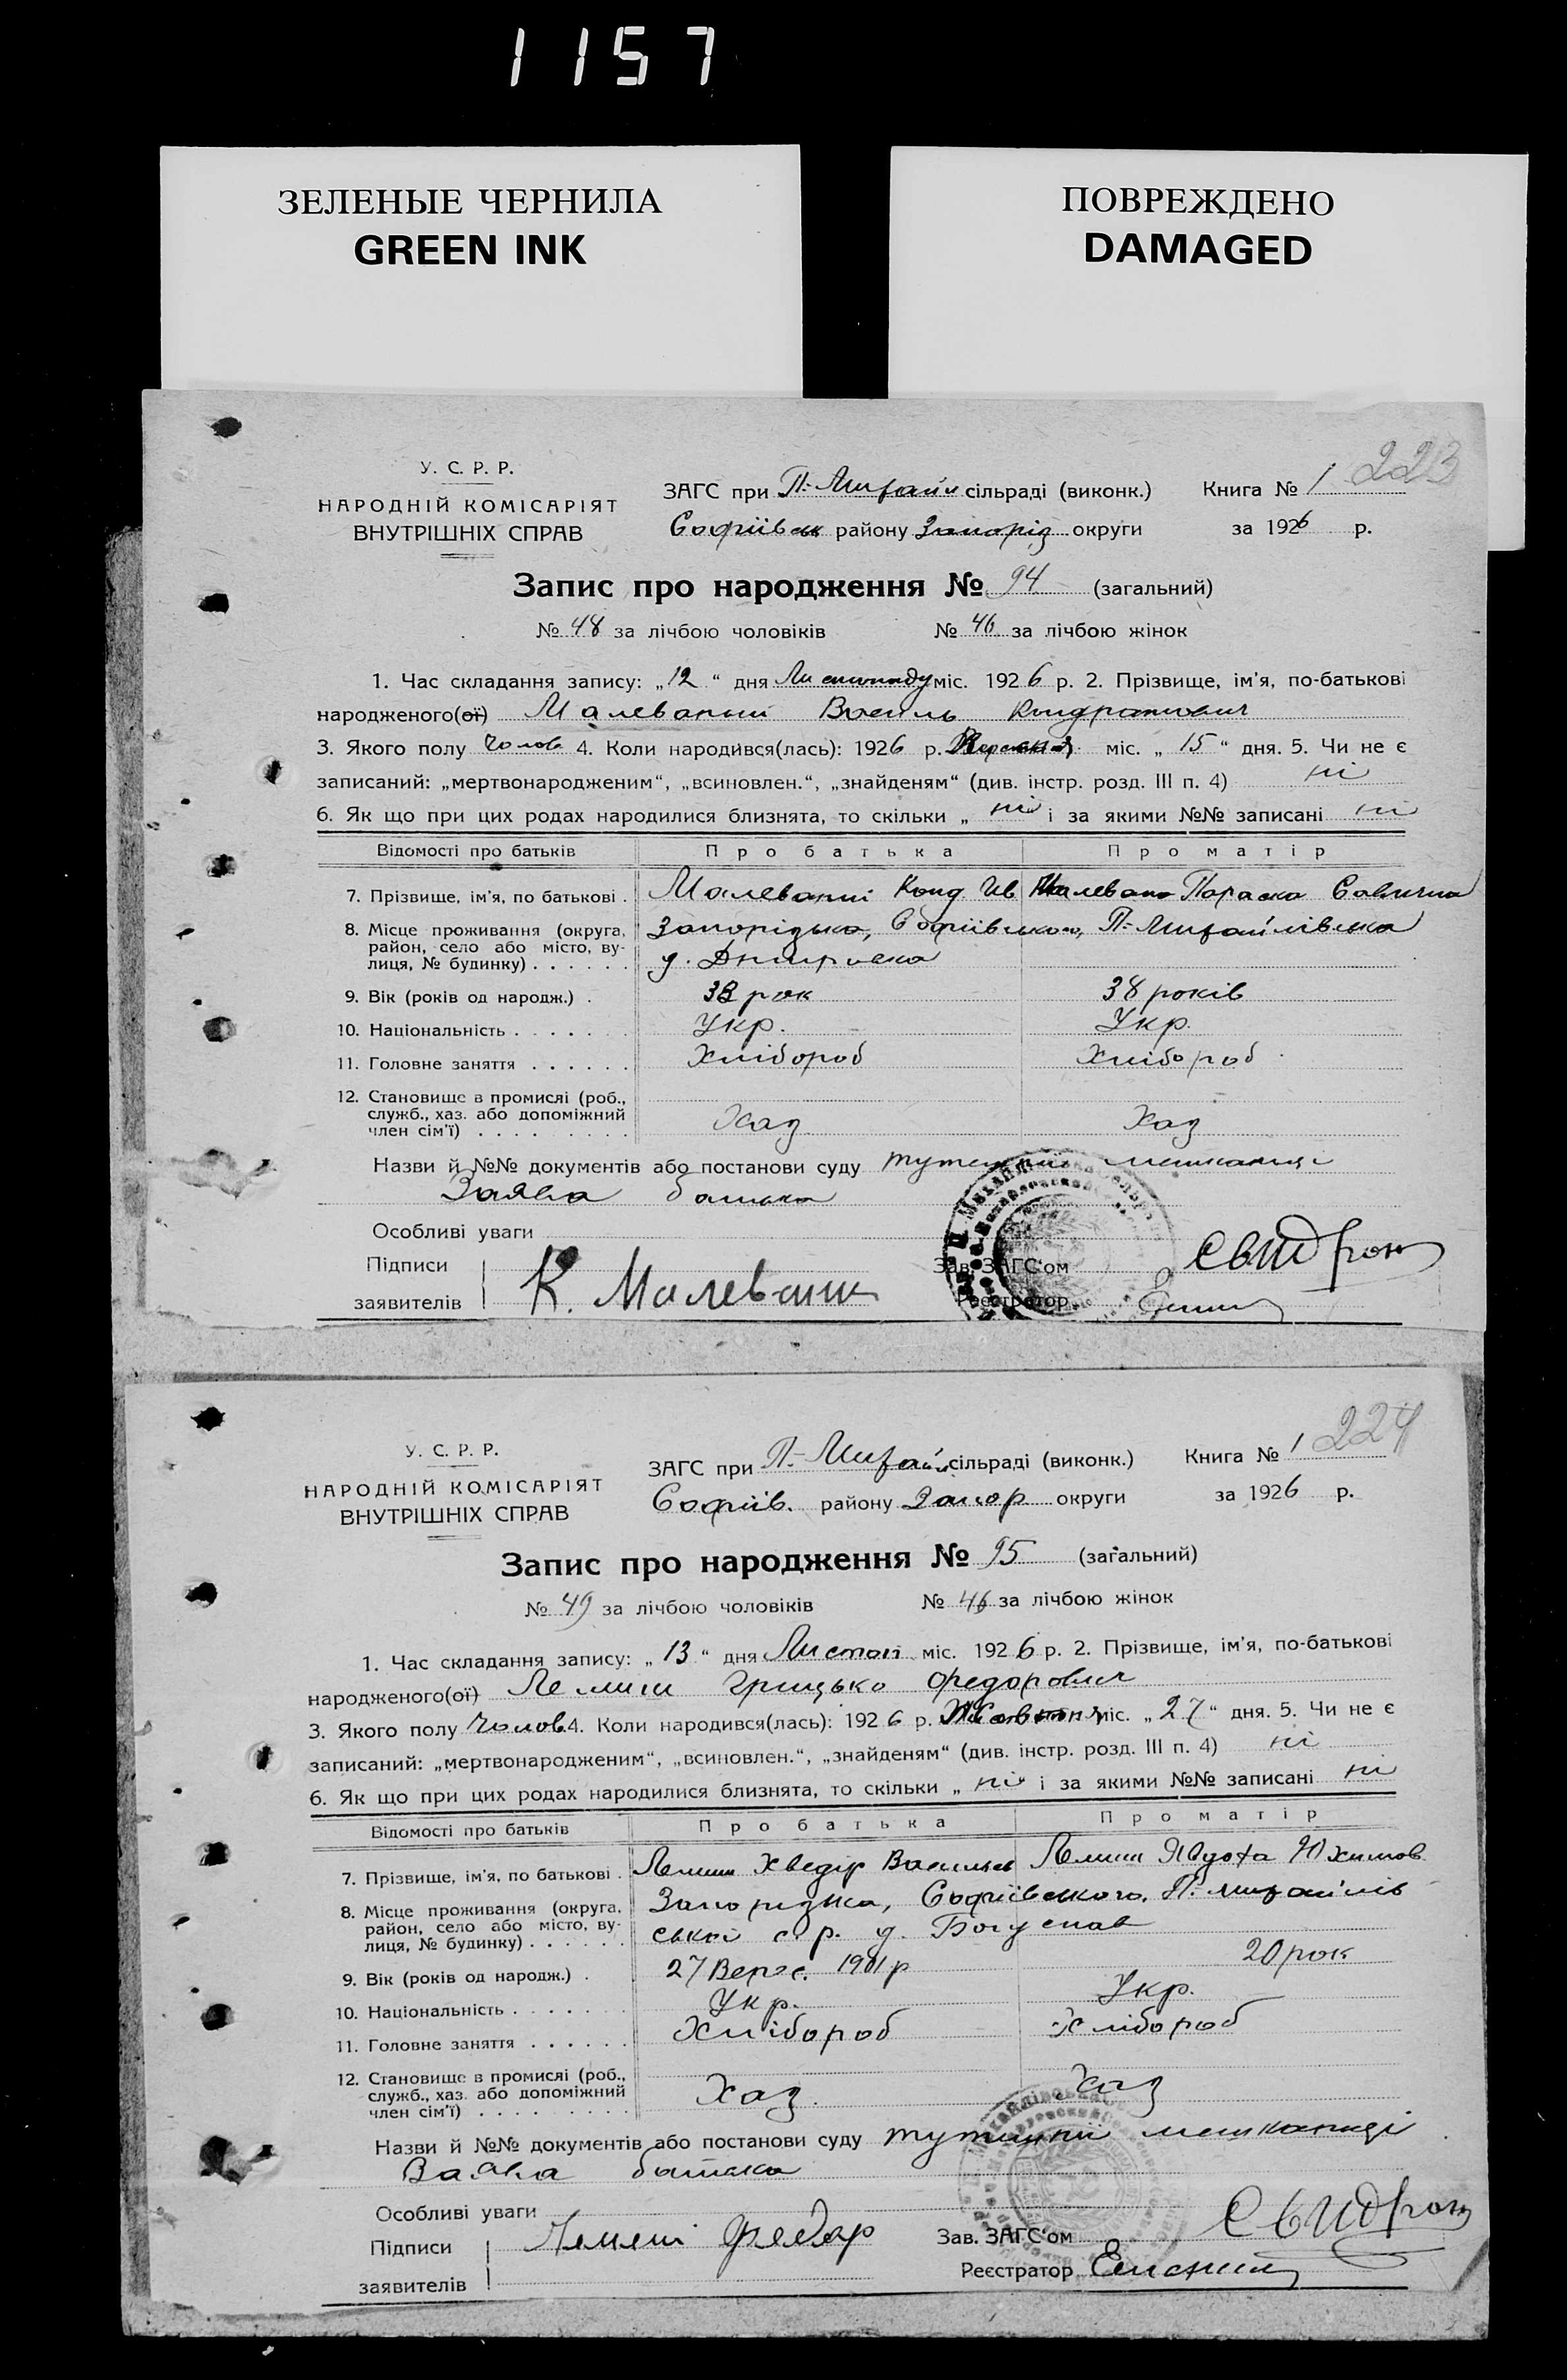 1157
ЗЕЛЕНЫЕ ЧЕРНИЛА
GREEN INK
ПОВРЕЖДЕНО
DAMAGED
У. С. Р. Р.
НАРОДНІЙ КОМІСАРІЯТ
ВНУТРІШНІХ СПРАВ
ЗАГС при П.-Михайл сільраді (виконк.) Книга № 1 223
Софіївськ району Запоріз округи за 1926 р.
Запис про народження № 94 (загальний)
№ 48 за лічбою чоловіків № 46 за лічбою жінок
1. Час складання запису: „12“ дня Листопаду міс. 1926 р. 2. Прізвище, ім'я, по-батькові
народженого(ої) Малеваний Василь Кондратович
3. Якого полу Чолов 4. Коли народився(лась): 1926 р. міс. „15“ дня. 5. Чи не є
записаний: „мертвонародженим“, „всиновлен.“, „знайденям“ (див. інстр. розд. III п. 4) ні
6. Як що при цих родах народилися близнята, то скільки „ ні і за якими №№ записані ні
Відомості про батьків Про батька Про матір
7. Прізвище, ім'я, по батькові . Малеваний Конд Ив Малевана Параска Савична
8. Місце проживання (округа, район, село або місто, вулиця, № будинку) . . . . . . Запорізька, Софіївського, П.-Михайлівська
д. Дмитровка
9. Вік (років од народж.) . 38 рок 38 років
10. Національність . . . . . . Укр. Укр.
11. Головне заняття . . . . . . Хлібороб Хлібороб
12. Становище в промислі (роб., служб., хаз. або допоміжний член сім'ї) . . . . . . . . Хаз Хаз
Назви й №№ документів або постанови суду тутешній мешканці
Заява батька
Особливі уваги
Підписи
заявителів К. Малеваний
Зав. ЗАГС'ом
Реєстратор
У. С. Р. Р.
НАРОДНІЙ КОМІСАРІЯТ
ВНУТРІШНІХ СПРАВ
ЗАГС при П.-Михайл сільраді (виконк.) Книга № 1 224
Софіїв. району Запор округи за 1926 р.
Запис про народження № 95 (загальний)
№ 49 за лічбою чоловіків № 46 за лічбою жінок
1. Час складання запису: „13“ дня Листоп міс. 1926 р. 2. Прізвище, ім'я, по-батькові
народженого(ої) Лемиш Грицько Федорович
3. Якого полу Чолов 4. Коли народився(лась): 1926 р. Жовтня міс. „27“ дня. 5. Чи не є
записаний: „мертвонародженим“, „всиновлен.“, „знайденям“ (див. інстр. розд. III п. 4) ні
6. Як що при цих родах народилися близнята, то скільки „ ні і за якими №№ записані ні
Відомості про батьків Про батька Про матір
7. Прізвище, ім'я, по батькові . Лемиш Хведір Васильев Лемиш Явдоха Юхимов
8. Місце проживання (округа, район, село або місто, вулиця, № будинку) . . . . . . Запорізька, Софіївського, П. михайлів
ської с р. д. Богуслав
9. Вік (років од народж.) . 27 Верес. 1901 р 20 рок
10. Національність . . . . . . Укр. Укр.
11. Головне заняття . . . . . . Хлібороб Хлібороб
12. Становище в промислі (роб., служб., хаз. або допоміжний член сім'ї) . . . . . . . . Хаз. Хаз
Назви й №№ документів або постанови суду тутешній мешканці
Заява батька
Особливі уваги
Підписи Лемеш Федор
заявителів
Зав. ЗАГС'ом
Реєстратор